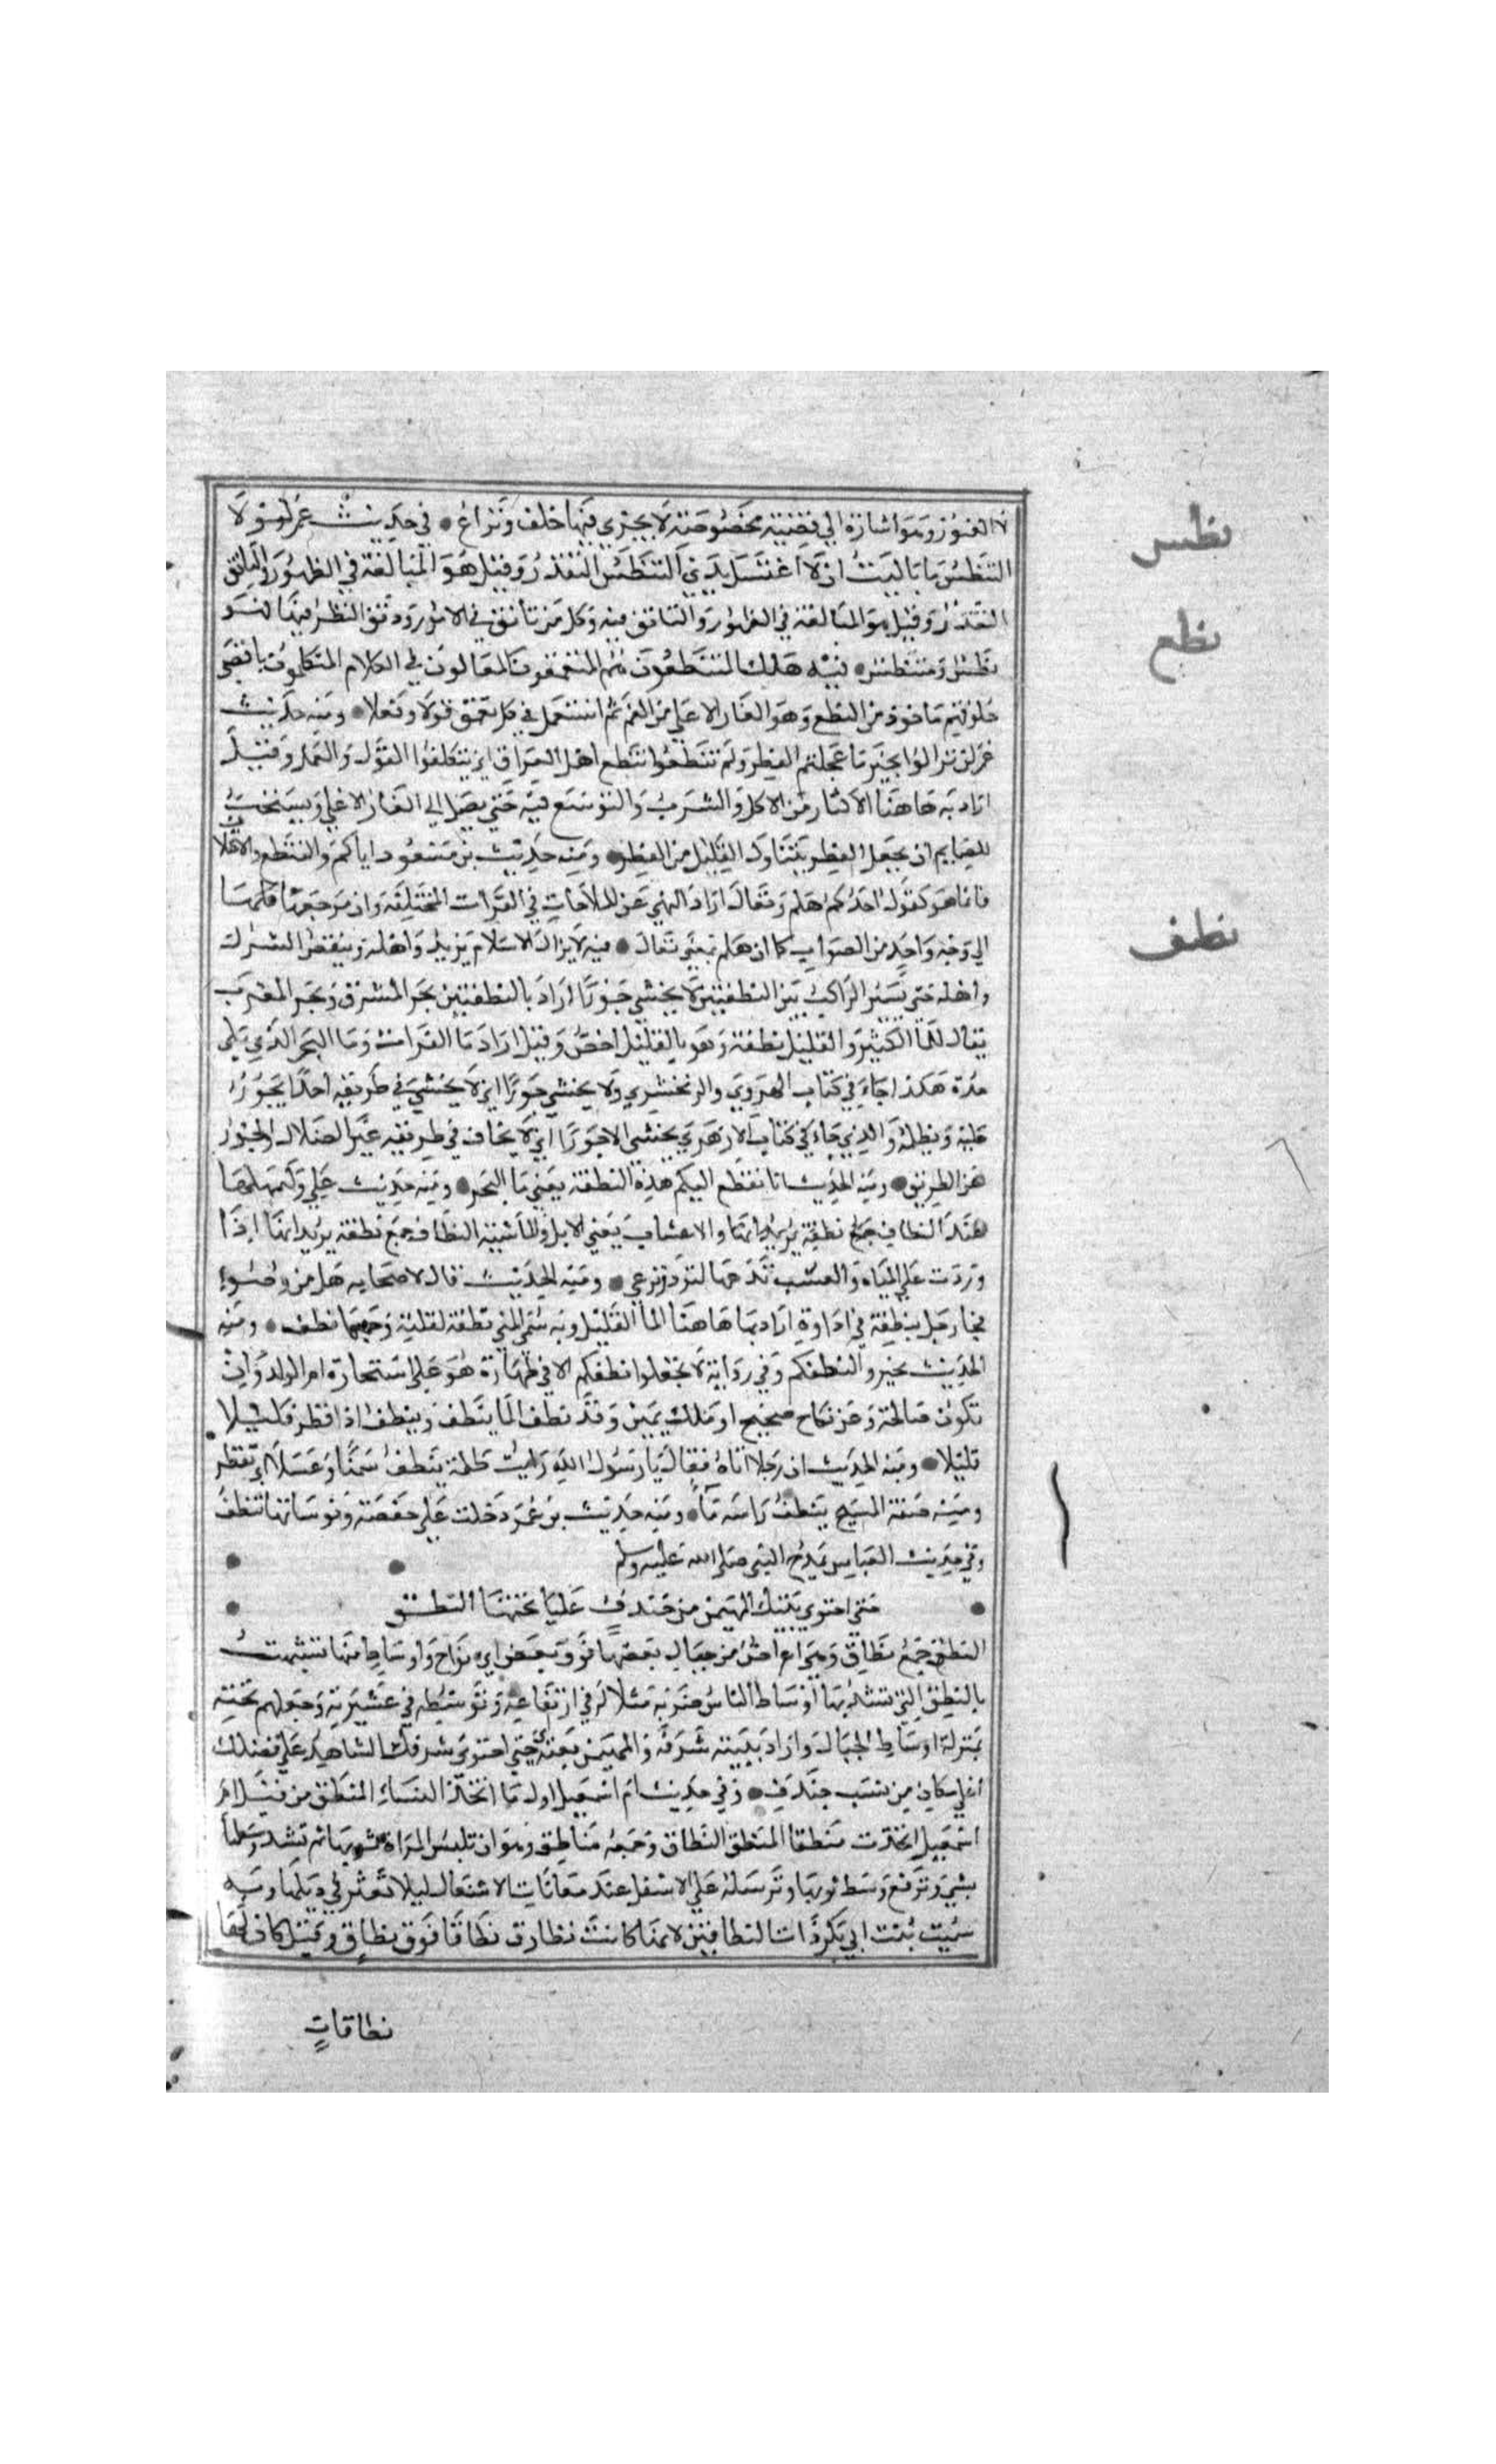 العنوز وهو اشارة الي قضية مخصوصة لا يجري فيها خلف ونزاع • في حديث عمر لولا
التنطس ما باليت ان لا اغتسل يدي التنطس التقذر وقيل هو المبالغة في الطهور والتانق
التقذر وقيل هو المبالغة في الطهور والتانق فيه وكل من تانق في الامور ودقق النظر فيها لهو
نطس ومتنطس • فيه هلك المتنطعون هم المتعمقون المغالون في الكلام المتكلمون باقصي
حلوقهم ماخوذ من النطع وهو الغار الاعلي من الفم ثم استعمل في كل تعمق قولا وفعلا • ومنه حديث
عمر لن تزالوا بخير ما عجلتم الفطر ولم تنطعوا تنطع اهل العراق اي يتكلفوا القول والعمل وقيل
اراد به هاهنا الاكثار من الاكل والشرب والتوسع فيه حتي يصل الي الغار الاعلي ويستحب
للصايم ان يجعل الفطر بتناول القليل من الفطور • ومنه حديث بن مسعود اياكم والتنطع والاختلاف
فانما هو كقول احدكم هلم وتعال اراد النهي عن الملاحات في القرات المختلفة وان مرجعها كلها
الي وجه واحد من الصواب كما ان هلم بمعني تعال • فيه لا يزال الاسلام يزيد واهله وينقص الشرك
واهله حتي يسير الراكب بين النطفتين لا يخشي جورا اراد بالنطفتين بحر المشرق وبحر المغرب
يقال للما الكثير والقليل نطفة وهو بالقليل اخص وقيل اراد ما الفرات وما البحر الذي يلي
جدة هكذا جاء في كتاب الهروي والزمخشري ولا يخشي جورا اي لا يخشي في طريقه احدا يجور
عليه ويظلمه والذي جاء في كتاب الازهري لا يخشي الا جورا اي لا يخاف في طريقه غير الضلال والجور
عن الطريق • ومنه الحديث انا نقطع اليكم هذه النطفة يعني ما البحر • ومنه حديث علي وليمهلها
عند النطاف جمع نطفة يريد انها والاعشاب يعني الابل والماشية النطاف جمع نطفة يريد انها اذا
وردت علي المياه والعشب تدعها لترد وترعي • ومنه الحديث قال لاصحابه هل من وضوء
فجا رجل بنطفة في اداوة اراد بها هاهنا الما القليل وبه سمي المني نطفة لقلته وجمعها نطف • ومنه
الحديث تخيروا لنطفكم وفي رواية لا تجعلوا نطفكم الا في طهارة هو علي استحارة ام الولد وان
تكون صالحة وعن نكاح صحيح او ملك يمين وقد نطف الما ينطف وينطف اذا قطر قليلا
قليلا • ومنه الحديث ان رجلا اتاه فقال يا رسول الله رايت ظلة ينطف سمنا وعسلا اي تقطر
ومنه صفة المسيح ينطف راسه ماء • ومنه حديث بن عمر دخلت علي حفصة ونوساتها تنطف
وفي حديث العباس يمدح النبي صلي الله عليه وسلم • •
• حتي احتوي بيتك المهيمن من خندف عليا تحتها النطق •
النطق جمع نطاق وهي اعراض من جبال بعضها فوق بعض اي نواح واوساط منها شبهت
بالنطق التي تشد بها اوساط الناس ضربه مثلا له في ارتفاعه وتوسطه في عشيرته وجعلهم تحته
بمنزلة اوساط الجبال واراد ببيته شرفه والمهيمن نعته حتي احتوي شرفك الشاهد علي فضلك
اعلي مكان من نسب خندف • وفي حديث ام اسمعيل اول ما اتخذ النساء المنطق من قبل ام
اسمعيل اتخذت منطقا المنطق النطاق وجمعه مناطق وهو ان تلبس المراة ثوبها ثم تشد وسطها
بشي وترفع وسط ثوبها وترسله علي الاسفل عند معانات الاشغال ليلا تعثر في ذيلها وبه
سميت بنت ابي بكر ذات النطاقين لانها كانت تطارق نطاقا فوق نطاق وقيل كان لها
نطاقات
نطس
نطع
نطف